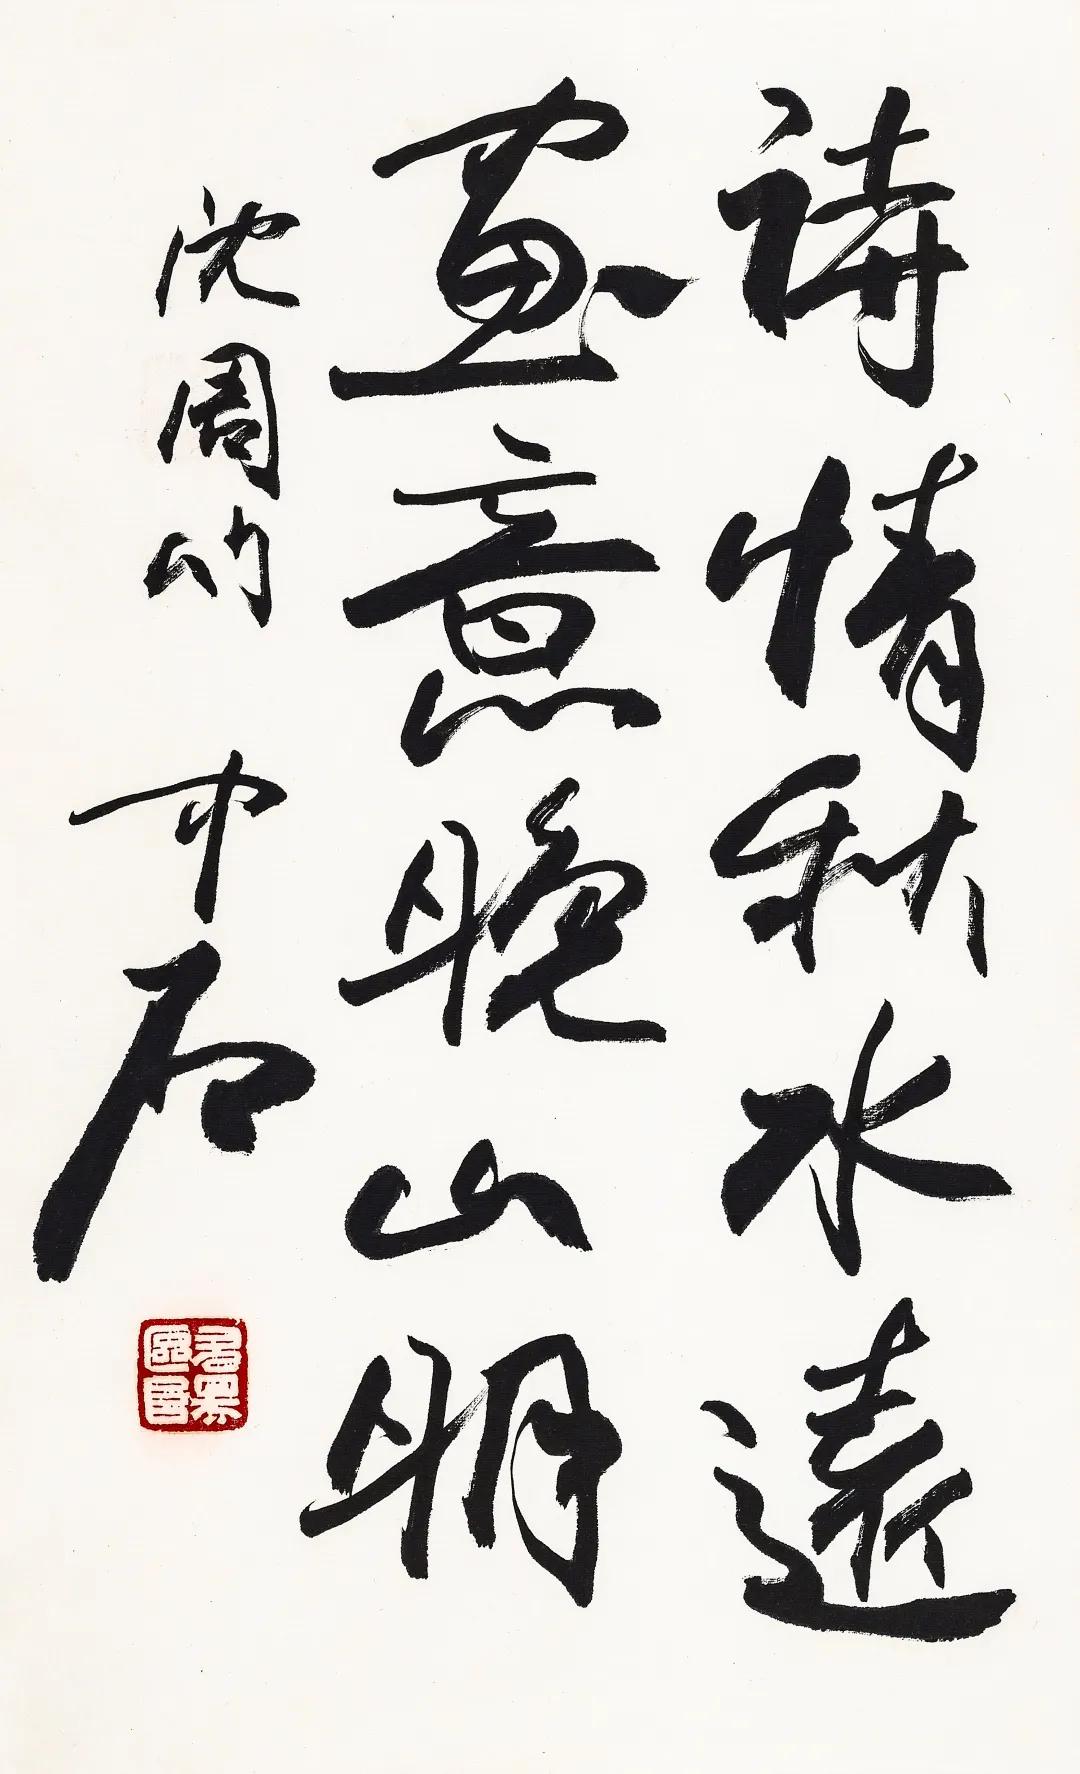 詩情秋水遠
畫意晚山明
沈周句 中石